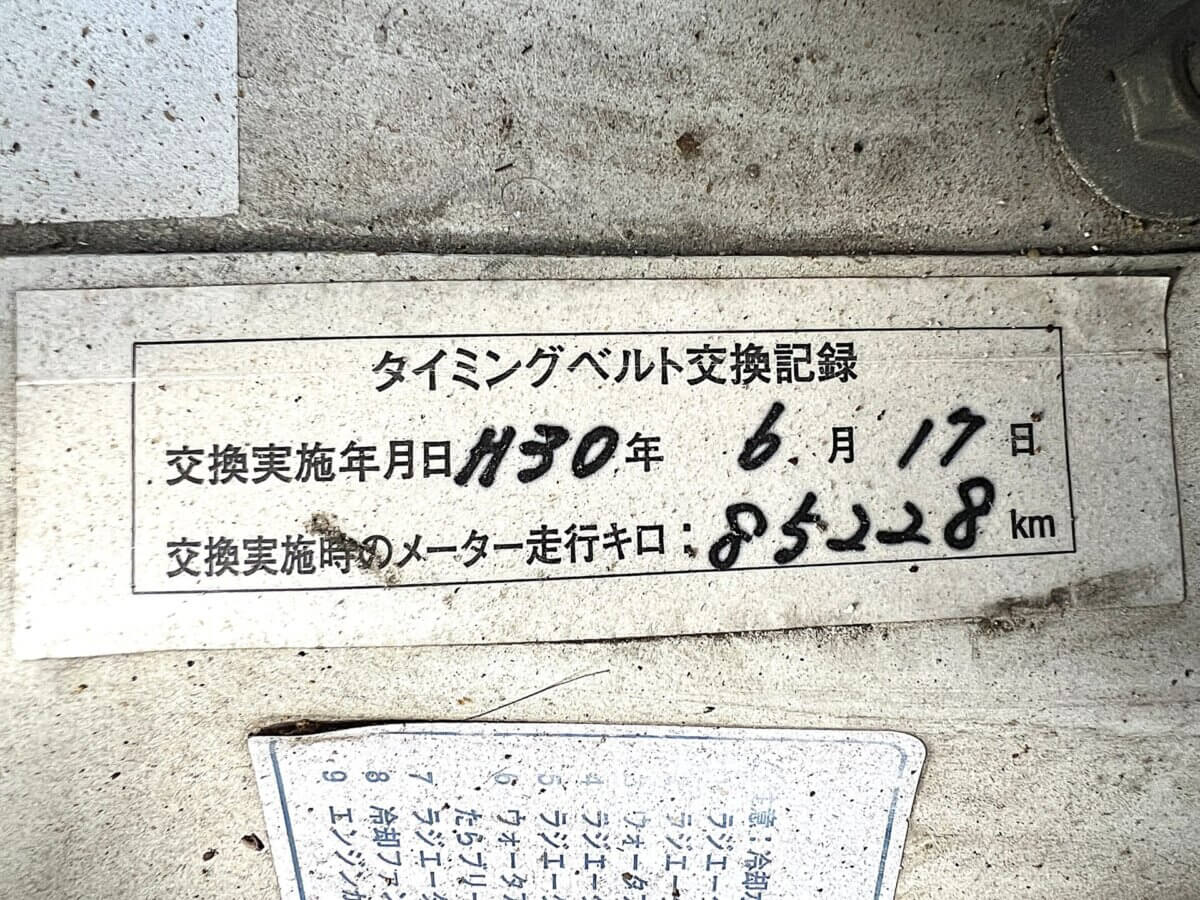 タイミングベルト交換記録
交換実施年月日 H30年 6月 17日
交換実施時のメーター走行キロ：85228 km
意：冷却
ラジエー
ラジエー
ウォータ
4 ラジエー
5 ラジエー
6 ウォータ
たらブリー
7 ラジエータ
8 冷却ファン
9 エンジンが